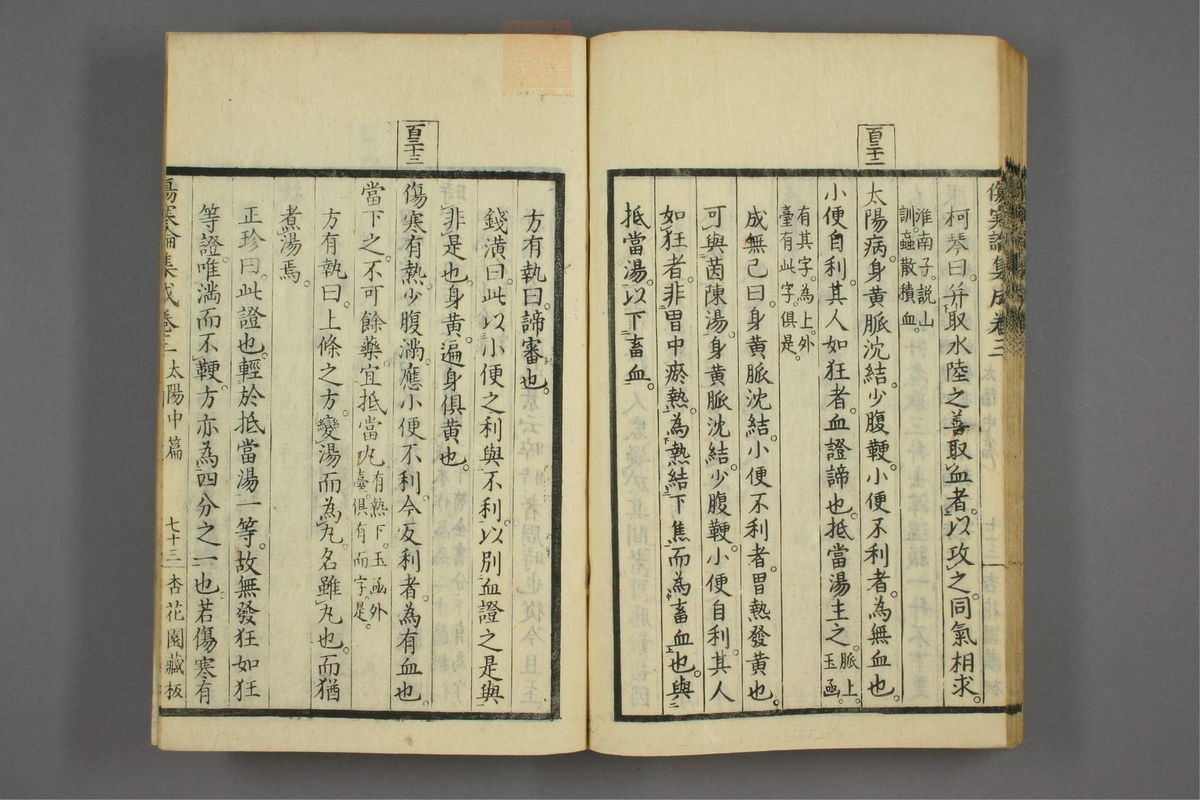 傷寒論集成卷三
柯琴曰。并取水陸之善取血者。以攻之。同氣相求。
淮南子。説山
訓。蝱散積血。
百三十二
太陽病。身黃脈沈結。少腹鞕。小便不利者。為無血也。
小便自利。其人如狂者。血證諦也。抵當湯主之。脈上。玉函。
有其字。為上。外
臺有此字。俱是。
成無己曰。身黃脈沈結。小便不利者。胃熱發黃也。
可與茵陳湯。身黃脈沈結。少腹鞕。小便自利。其人
如狂者。非胃中瘀熱。為熱結下焦而為畜血也。與
抵當湯。以下畜血。
方有執曰。諦審也。
錢潢曰。此以小便之利與不利。以別血證之是與
非是也。身黃。遍身俱黃也。
百三十三
傷寒有熱。少腹滿。應小便不利。今反利者。為有血也。
當下之。不可餘藥。宜抵當丸。有熱下。玉函外臺。俱有而字。是。
方有執曰。上條之方。變湯而為丸。名雖丸也。而猶
煮湯焉。
正珍曰。此證也。輕於抵當湯一等。故無發狂如狂
等證。唯滿而不鞕。方亦為四分之一也。若傷寒有
傷寒論集成卷三 太陽中篇 七十三 杏花園藏板